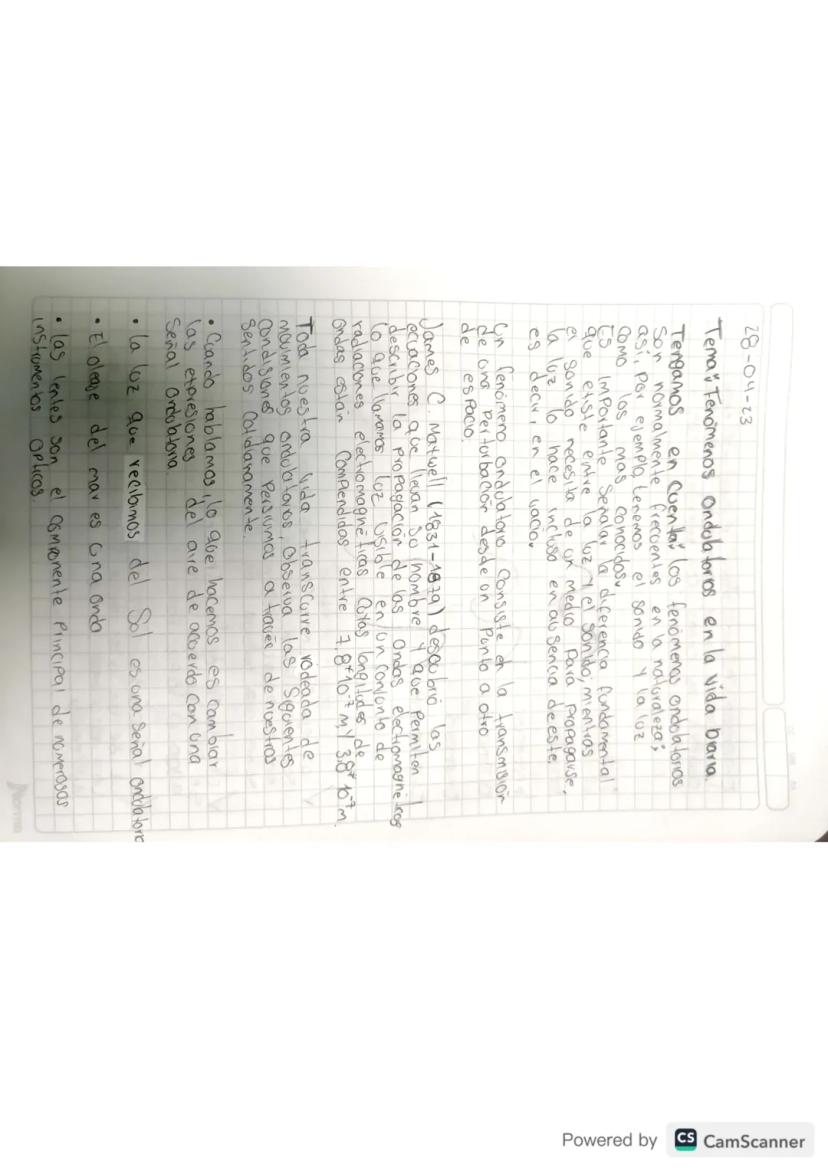 28-04-23
Tema: Fenómenos ondulatorios en la vida diaria
Tengamos en cuenta: los fenómenos ondulatorios
son normalmente frecuentes en la naturaleza;
así, por ejemplo, tenemos el sonido y la luz
como los mas conocidos.
Es importante señalar la diferencia fundamental
que existe entre la luz y el sonido; mientras
el sonido necesita de un medio para propagarse,
la luz lo hace incluso en ausencia de este,
es decir, en el vacio.
Un fenómeno ondulatorio consiste en la transmisión
de una perturbación desde un punto a otro
de espacio.
James C. Maxwell (1831-1879) descubrió las
ecuaciones que llevan su nombre y que permiten
describir la propagación de las ondas electromagneticas
lo que llamamos luz visible en un conjunto de
radiaciones electromagnéticas cuyas longitudes de
ondas estan comprendidas entre 7,8*10⁻⁷ m y 3,8*10⁻⁷ m.
Toda nuestra vida transcurre rodeada de
movimientos ondulatorios, observa las siguientes
condisiones que persivimos a través de nuestros
sentidos cotidanamente.
• Cuando hablamos, lo que hacemos es cambiar
las expresiones del aire de acuerdo con una
señal ondulatoria.
• la luz que recibimos del Sol es una señal ondulatoria
• El oleaje del mar es una onda
• las lentes son el componente principal de numerosos
instrumentos opticos.
norma
Powered by CS CamScanner